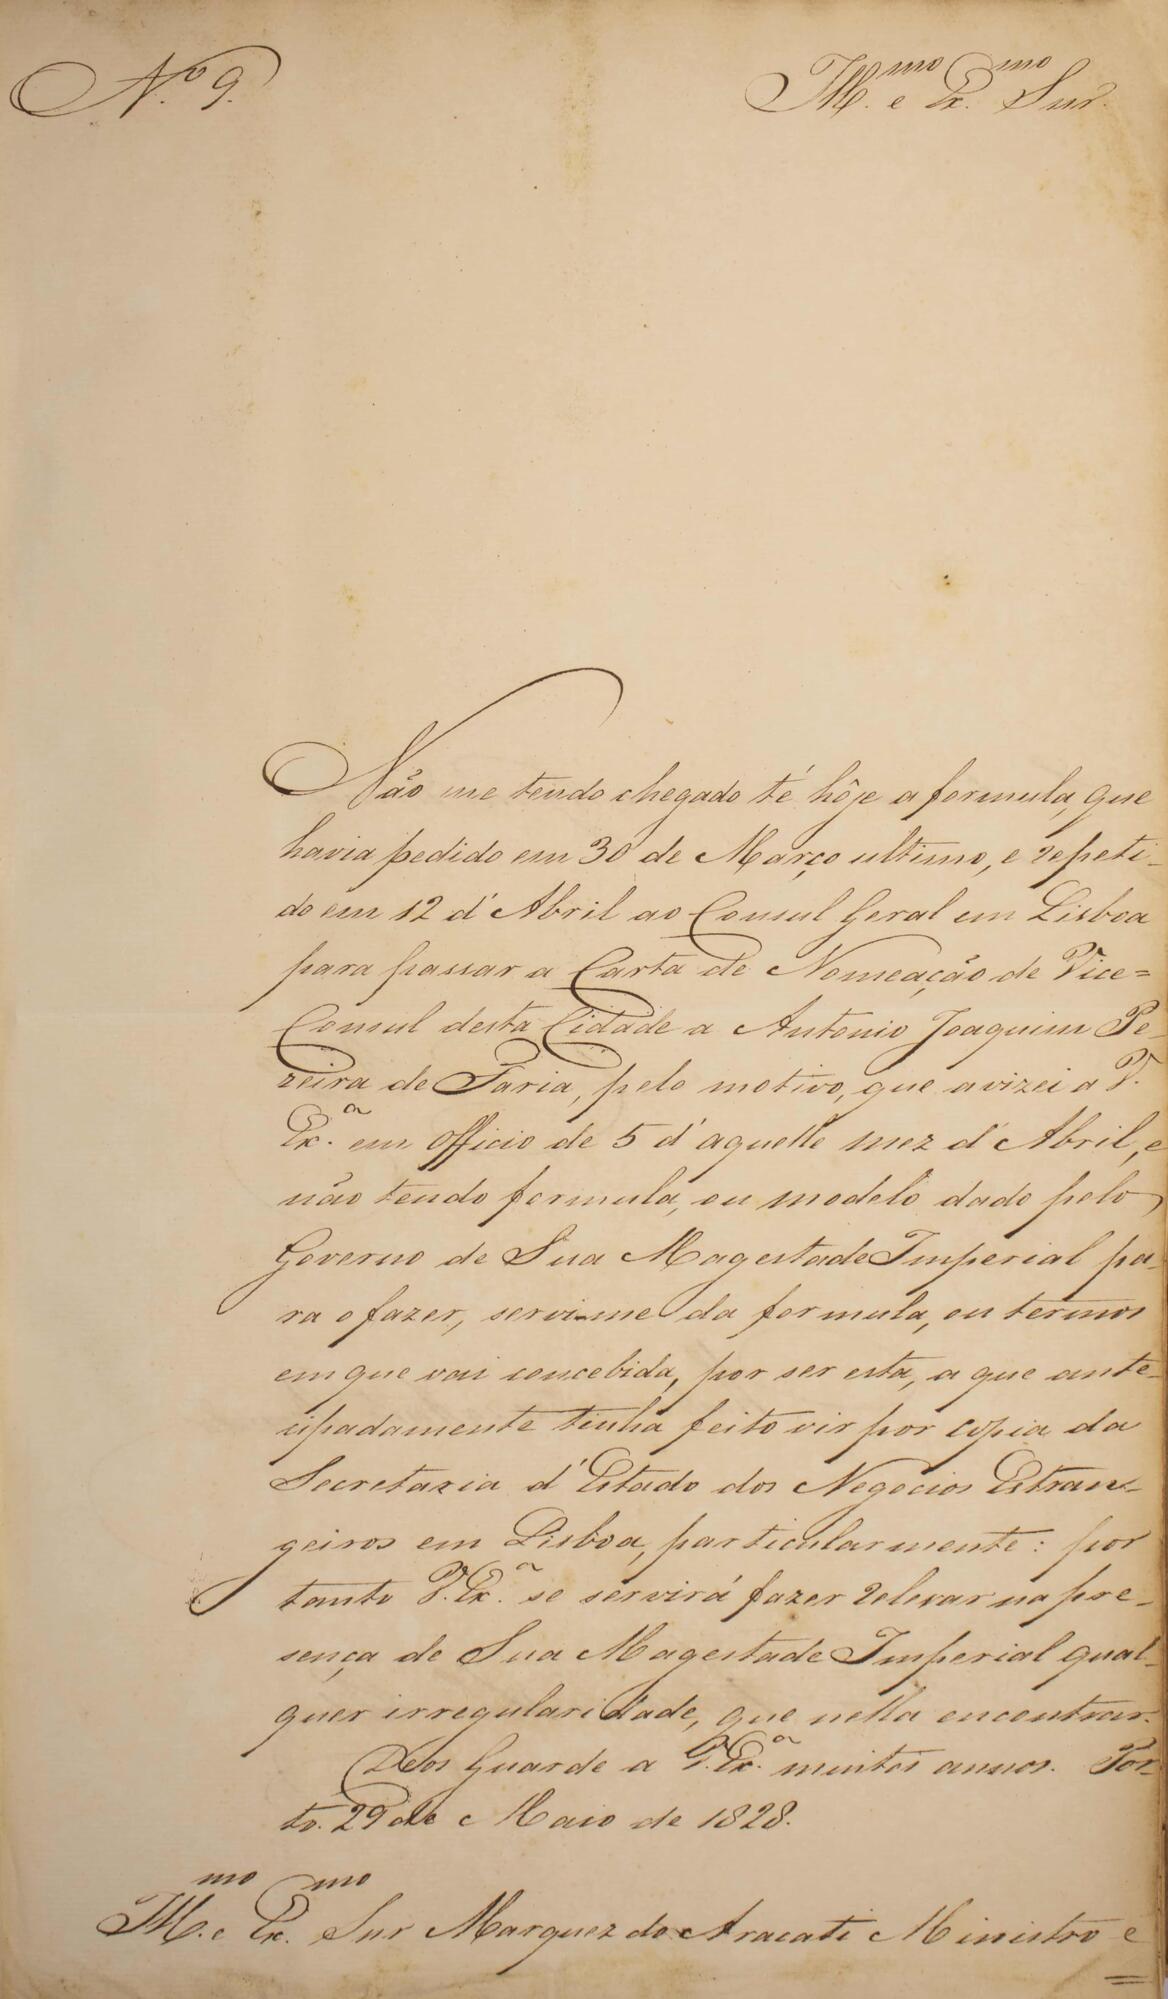 N.º 9.
Ill.mo e Ex.mo Snr.
Não me tendo chegado té hôje a formula, que
havia pedido em 30 de Março ultimo, e repeti-
do em 12 d'Abril ao Consul Geral em Lisboa
para passar a Carta de Nomeação de Vice=
Consul desta Cidade a Antonio Joaquim Pe-
reira de Faria, pelo motivo, que avizei a V.
Ex.ª em Officio de 5 d'aquelle mez d'Abril, e
não tendo formula, ou modelo dado pelo
Governo de Sua Magestade Imperial pa-
ra o fazer, servi-me da formula, ou termos
em que vai concebida, por ser esta, a que ante-
cipadamente tinha feito vir por copia da
Secretaria d'Estado dos Negocios Estran-
geiros em Lisboa, particularmente: por
tanto V. Ex.ª se servirá fazer relevar na pre-
sença de Sua Magestade Imperial qual-
quer irregularidade, que nella encontrar.
Deos Guarde a V. Ex.ª muitos annos. Por-
to. 29 de Maio de 1828.
Ill.mo e Ex.mo Snr Marquez do Aracati Ministro e